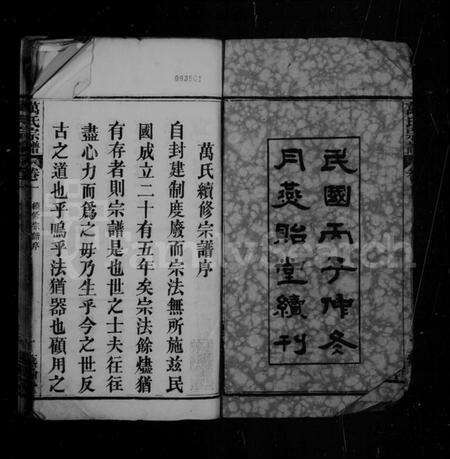 民國丙子仲冬
月燕貽堂續刊
萬氏續修宗譜序
自封建制度廢而宗法無所施茲民
國成立二十有五年矣宗法餘燼猶
有存者則宗譜是也世之士夫往往
盡心力而為之毋乃生乎今之世反
古之道也乎嗚乎法猶器也顧用之
萬氏宗譜
卷一
983501